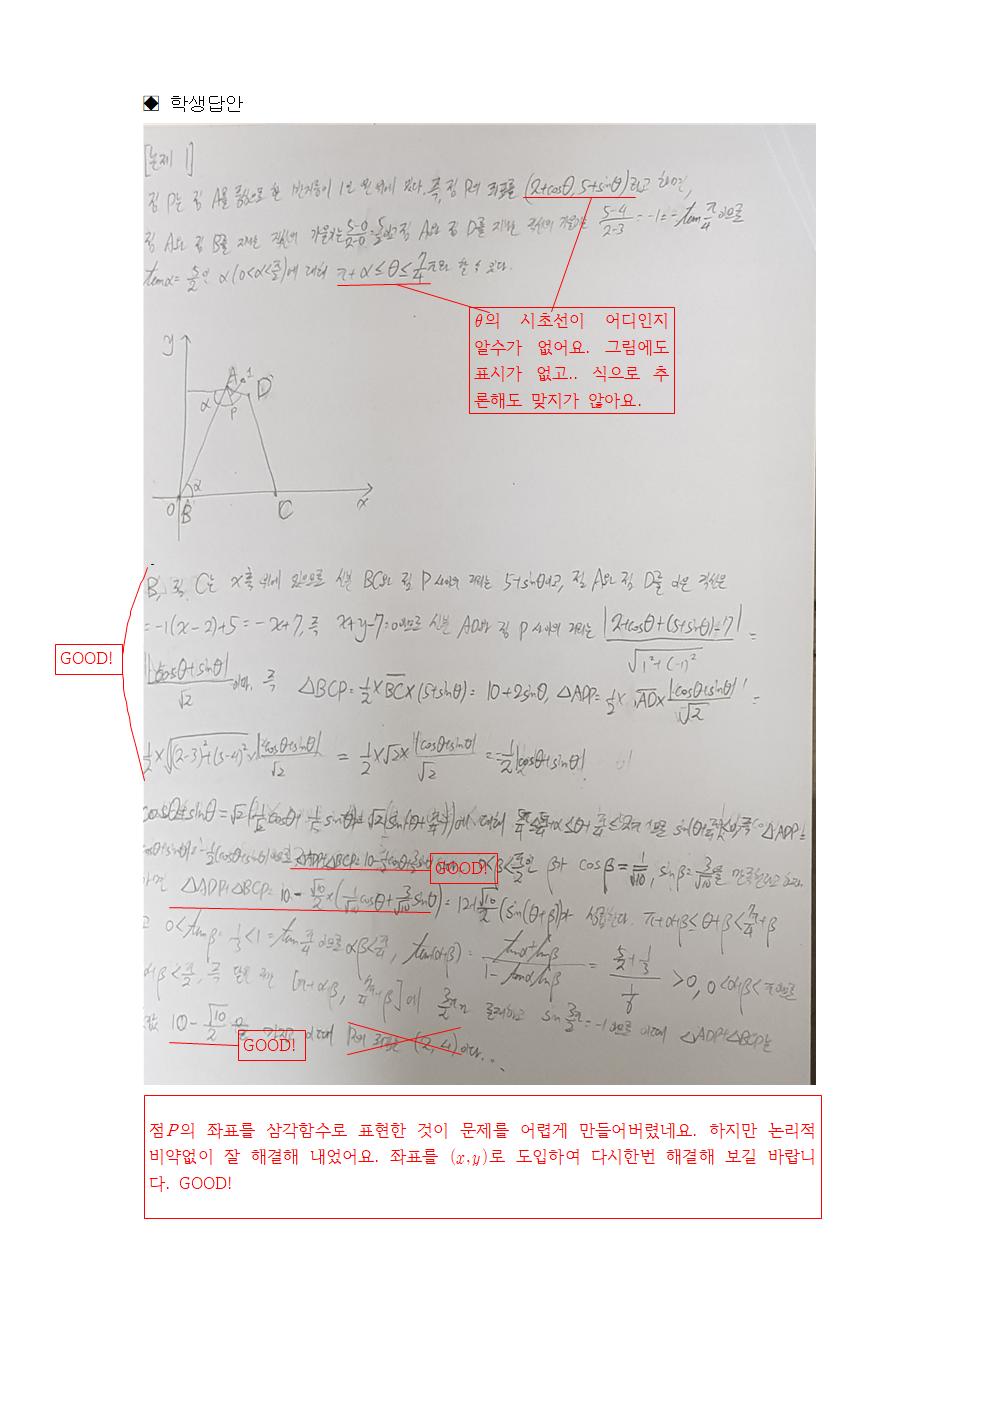 ◆ 학생답안
[문제 1]
점 P는 점 A를 중심으로 한 반지름이 1인 원 위에 있다. 즉, 점 P의 좌표를 (2+cosθ, 5+sinθ)라고 하면,
점 A와 점 B를 지나는 직선의 기울기는 5-0/2-0 = 5/2이고 점 A와 점 D를 지나는 직선의 기울기는 5-4/2-3 = -1 = -tan π/4 이므로
tanα = 5/2인 α(0<α<π/2)에 대해 π+α≤θ≤7/4π라 할 수 있다.
θ의 시초선이 어디인지
알수가 없어요. 그림에도
표시가 없고.. 식으로 추
론해도 맞지가 않아요.
y
A
1
D
α
P
α
O
B
C
x
B, 점 C는 x축 위에 있으므로 선분 BC와 점 P 사이의 거리는 5+sinθ이고, 점 A와 점 D를 이은 직선은
= -1(x-2)+5 = -x+7, 즉 x+y-7=0이므로 선분 AD와 점 P 사이의 거리는 |2+cosθ+(5+sinθ)-7| / √1²+(-1)² =
GOOD!
|cosθ+sinθ|/√2 이다. 즉 △BCP = 1/2 × BC × (5+sinθ) = 10+2sinθ, △ADP = 1/2 × AD × |cosθ+sinθ|/√2 =
1/2 × √(2-3)²+(5-4)² × |cosθ+sinθ|/√2 = 1/2 × √2 × |cosθ+sinθ|/√2 = 1/2|cosθ+sinθ|.
cosθ+sinθ = √2(1/√2 cosθ + 1/√2 sinθ) = √2(sin(θ+π/4))에 대해
GOOD!
β가 cosβ = 1/√10, sinβ = 3/√10을 만족한다고
하면 △ADP+△BCP = 10 - √10/2 × (1/√10 cosθ + 3/√10 sinθ)
π+α+β≤θ+β<7π/4+β
0<tanβ = 1/3 <1 = tan π/4 이므로 tan(α+β) = tanα+tanβ / 1-tanαtanβ = 5/2+1/3 / 1/6 >0, 0<α+β<π이므로
[π+α+β, 7π/4+β]에 3/2π가 존재하고 sin 3/2π = -1이므로 이때에 △ADP+△BCP는
10 - √10/2 을 이때에 P의 좌표는 (2, 4)이다.
GOOD!
점P의 좌표를 삼각함수로 표현한 것이 문제를 어렵게 만들어버렸네요. 하지만 논리적
비약없이 잘 해결해 내었어요. 좌표를 (x,y)로 도입하여 다시한번 해결해 보길 바랍니
다. GOOD!